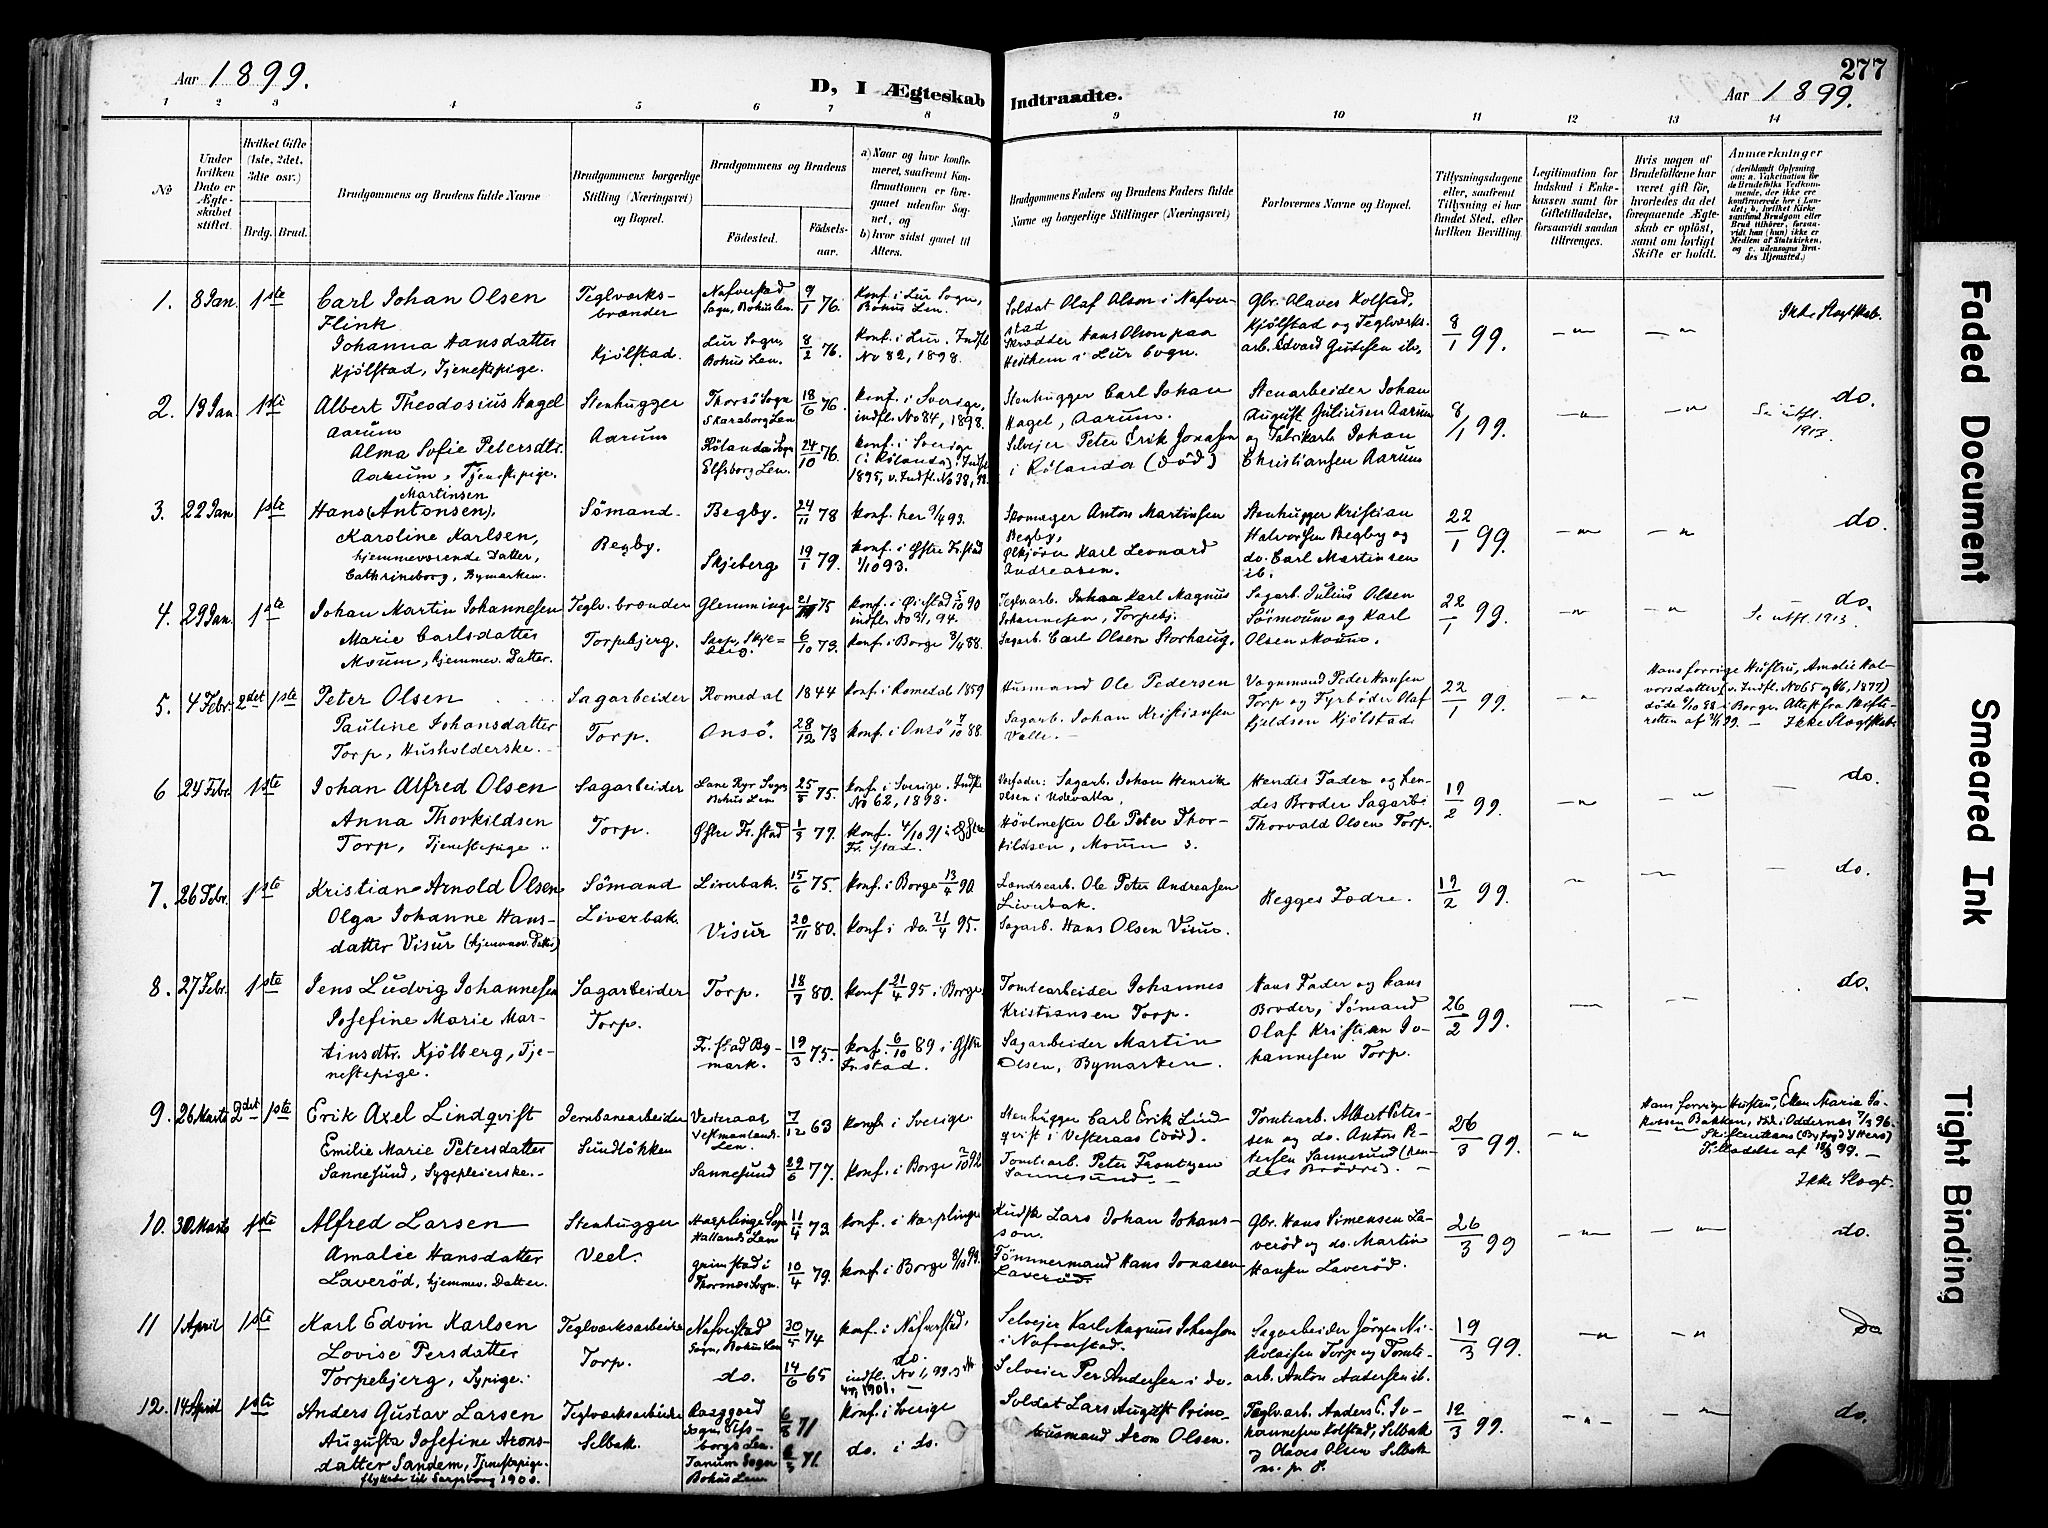 Aar 1899.
D, I Ægteskab Indtraadte.
277
Aar 1899.
1 2 3 4 5 6 7 8 9 10 11 12 13 14
No
Under hvilken Dato er Ægteskabet stiftet.
Hvilket Gifte (1ste, 2det, 3die osv.)
Brdg. Brud.
Brudgommens og Brudens fulde Navne
Brudgommens borgerlige Stilling (Næringsvei) og Bopæl.
Brudgommens og Brudens
Födested.
Födselsaar.
a) Naar og hvor konfirmeret, saafremt Konfirmationen er foregaaet udenfor Sognet, og
b) hvor sidst gaaet til Alters.
Brudgommens Faders og Brudens Faders fulde Navne og borgerlige Stillinger (Næringsvei)
Forlovernes Navne og Bopæl.
Tillysningsdagene eller, saafremt Tillysning ei har fundet Sted, efter hvilken Bevilling.
Legitimation for Indskud i Enkekassen samt for Giftetilladelse, forsaavidt saadan tiltrænges.
Hvis nogen af Brudefolkene har været gift för, hvorledes da det foregaaende Ægteskab er oplöst, samt om lovligt Skifte er holdt.
Anmærkninger
(deriblandt Oplysning om: a. Vakcination for de Brudefolks Vedkommende, der ikke ere konfirmerede her i Landet; b. hvilket Kirkesamfund Brudgom eller Brud tilhörer, forsaavidt han (hun) ikke er Medlem af Statskirken, og c. udensogns Brudes Hjemsted.)
1. 8 Jan. 1ste
Carl Johan Olsen
Flink
Johanna Hansdatter
Kjölstad, Tjenestepige.
Teglværks-
brænder
Kjölstad.
Nafverstad
Sogn, Bohuslen.
9/1 76.
Lur Sogn,
Bohus Len.
8/2 76.
Konf. i Lur Sogn,
Bohus Len.
Konf. i Lur. Indfl.
No 82, 1898.
Soldat Olaf Olson i Nafver-
stad
Skrædder Hans Olson paa
Hedthem i Lur Sogn.
Gbr. Olaves Kolstad,
Kjölstad og Teglværks-
arb. Edvard Gudesen ib.
8/1 99.
Ikke Slægtskab.
2. 19 Jan. 1ste
Albert Theodosius Hagel
Aarum
Alma Sofie Petersdtr.
Aarum, Tjenestepige.
Stenhugger
Aarum
Thorsö Sogn
Skaraborg Len
18/6 76.
Rölanda Sogn
Elfsborg Len.
24/10 76
konf. i Sverige,
indfl. No 84, 1898.
konf. i Sverige
(i Rölanda). Indfl.
1895, v. Indfl. No 38, 98.
Stenhugger Carl Johan
Hagel, Aarum.
Selveier Peter Erik Jonassen
i Rölanda (död)
Stenarbeider Johan
August Juliusen Aarum
og Fabrikarb. Johan
Christiansen Aarum
8/1 99.
do.
Se utfl.
1913.
3. 22 Jan. 1ste
Martinsen
Hans (Antonsen).
Karoline Karlsen,
hjemmeværende Datter,
Cathrineborg, Bymarken.
Sömand.
Begby.
Begby. 24/11 78
Skjeberg 19/1 79.
konf. her 9/4 93.
konf. i Østre Fr.stad
1/10 93.
Skomager Anton Martinsen
Begby,
Ølkjörer Karl Leonard
Andreasen.
Stenhugger Kristian
Halvorsen Begby og
do. Carl Martinsen
ib.
22/1 99.
do.
4. 29 Jan. 1ste
Johan Martin Johannesen
Marie Carlsdatter
Moum, hjemmev. Datter.
Teglv. brænder
Torpebjerg.
Glemminge 75
Sarp, Skje-
berg. 6/10 73.
indfl. No 31, 94.
konf. i Borge 3/4 88.
Teglv.arb. Karl Magnus
Johannesen, Torpebj.
Sagarb. Carl Olsen Storhaug.
Sagarb. Julius Olsen
Sörmoum og Karl
Olsen Moum.
22/1 99.
do.
Se utfl. 1913.
5. 4 Febr. 2det 1ste
Peter Olsen
Pauline Johansdatter
Torp, Husholderske.
Sagarbeider
Torp.
Romedal 1844
Onsö. 28/12 73
konf. i Romedal 1859
konf. i Onsö 7/10 88.
Husmand Ole Pedersen
Sagarb. Johan Kristiansen
Valle.
Vognmand Peder Hansen
Torp og Fyrböder Olaf
Kjeldsen Kjölstad
22/1 99.
Hans forrige Hustru, Amalie Hal-
vorsdatter (v. Indfl. No 65 og 66, 1877)
döde 9/10 98 i Borge. Attest fra Skifte-
retten af 99. — Ikke Slægtskab.
6 24 Febr. 1ste
Johan Alfred Olsen
Anna Thorkildsen
Torp, Tjenestepige
Sagarbeider
Torp.
Lane Ryr Sogn
Bohus Len 25/8 75.
Østre Fr.stad 1/3 77.
konf. i Sverige. Indfl.
No 62, 1898.
konf. 4/10 91 i Østre
Fr.stad.
Sagarb. Johan Henrik
Olsen i Udevalla.
Hövlmester Ole Peter Thor-
kildsen, Moum
Hendes Fader og hen-
des Broder Sagarb.
Thorvald Olsen Torp.
19/2 99.
do.
7. 26 Febr. 1ste
Kristian Arnold Olsen
Olga Johanne Hans-
datter Visur (hjemmev. Datter)
Sömand
Liverbak.
Liverbak. 15/6 75.
Visur 20/11 80.
konf. i Borge 13/4 90.
konf. i do. 21/4 95.
Landsearb. Ole Peter Andreassen
Liverbak.
Sagarb. Hans Olsen Visur.
Begges Fædre.
19/2 99.
do.
8. 27 Febr. 1ste
Jens Ludvig Johannesen
Josefine Marie Mar-
tinsdtr. Kjölberg, Tje-
nestepige.
Sagarbeider
Torp.
Torp. 18/7 80.
Fr.stad By-
mark. 19/3 75.
konf. 21/4 95 i Borge
konf. 6/10 89 i Østre
Fr.stad.
Tomtearbeider Johannes
Kristiansen Torp.
Sagarbeider Martin
Olsen, Bymarken.
Hans Fader og hans
Broder, Sömand
Olaf Kristian Jo-
hannesen Torp.
26/2 99.
do.
9. 26 Marts 2det 1ste
Erik Axel Lindqvist
Emilie Marie Petersdatter
Sannesund, Sygepleierske.
Jernbanearbeider
Sundlökken
Vesteraas
Vestmanlands-
Len. 7/12 63
Sannesund 22/6 77.
konf. i Sverige
konf. i Borge 2/10 92
Stenhugger Carl Erik Lind-
qvist i Vesteraas (död).
Tomtearb. Peter Frantzen
Sannesund.
Tomtearb. Albert Peter-
sen og do. Anton Pe-
tersen Sannesund (hen-
des Brödre).
26/3 99.
Hans forrige Hustru, Ellen Marie Ja-
kobsen Bakken, döde i Oddernes 7/3 96.
Tilladelse af 99.
Ikke Slægt.
10. 30 Marts 1ste
Alfred Larsen
Amalie Hansdatter
Laveröd, hjemmev. Datter.
Stenhugger
Veel.
Harplinge Sogn
Hallands Len 11/4 73
Grimstad i
Thorsnæs Sogn. 10/4 79.
konf. i Harplinge
konf. i Borge 8/10 93.
Kudsk Lars Johan Johans-
son.
Tömmermand Hans Jonasen
Laveröd.
Gbr. Hans Simensen La-
veröd og do. Martin
Hansen Laveröd.
26/3 99
do.
11 1 April 1ste
Karl Edvin Karlsen
Lovise Persdatter
Torpebjerg, Sypige.
Teglværksarbeider
Torp.
Nafverstad
Sogn, Bohus Len 30/5 74
do. 14/6 65
konf. i Nafverstad.
do.
indfl. No 1, 99.
Selveier Karl Magnus Johanson
i Nafverstad.
Selveier Per Andersen i do.
Sagarbeider Jörgen Ni-
kolaisen Torp og Tomte-
arb. Anton Andersen ib.
19/3 99.
do
12. 14 April 1ste
Anders Gustav Larsen
Augusta Josefine Arons-
datter Sandem, Tjenestepige.
flyttede til Sarpsborg 1900.
Teglværksarbeider
Selbak.
Raaggerd
Sogn, Elfs-
borgs Len. 6/8 71
Tanum Sogn
Bohus Len 6/3 71.
konf. i Sverige
do. i do.
Soldat Lars August Prins.
Husmand Aron Olsen.
Teglv.arb. Anders E. Jo-
hannesen Kolstad, Selbak
og Olaves Olsen Selbak
m. p. P.
12/3 99.
do.
Faded Document
Smeared Ink
Tight Binding